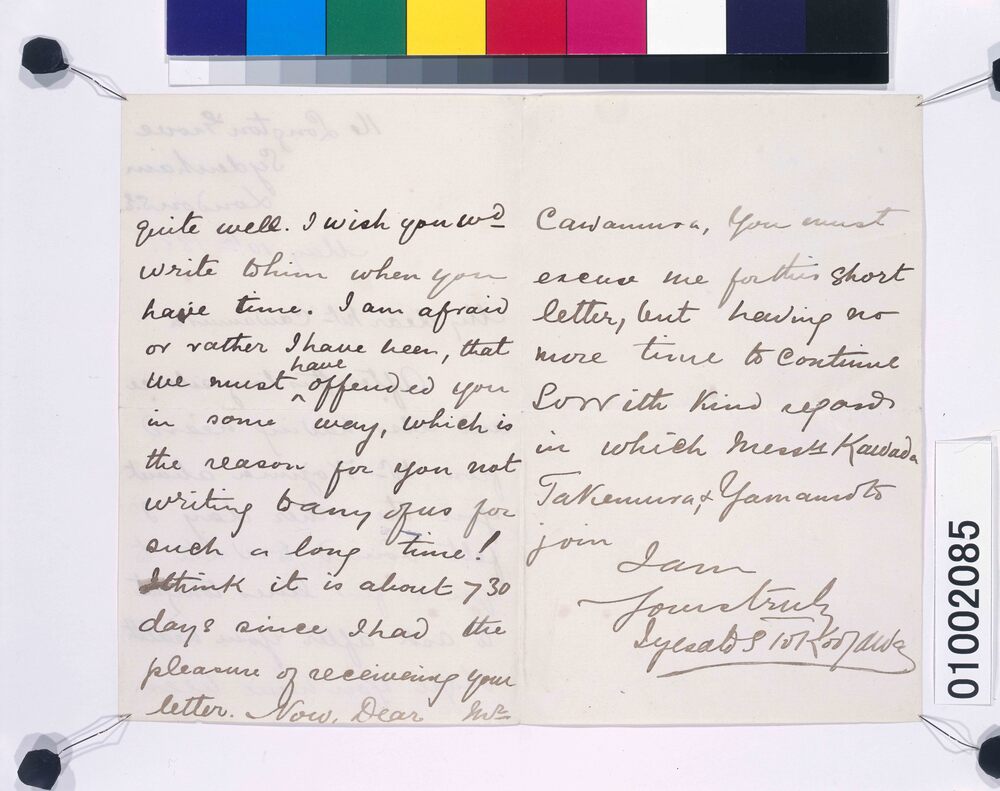 quite well. I wish you wd
write to him when you
have time. I am afraid
or rather I have been, that
we must have offended you
in some way, which is
the reason for you not
writing to any of us for
such a long time!
I think it is about 730
days since I had the
pleasure of receivering your
letter. Now, Dear Mr.
Cawamura, You must
excuse me for this short
letter, but having no
more time to continue
So with kind regards
in which Messrs Kawada
Takemura & Yamamoto
join
I am
Yours truly
Iyesato S Tokoogawa
16 Longton Grove
Sydenham
London S.E.
01002085